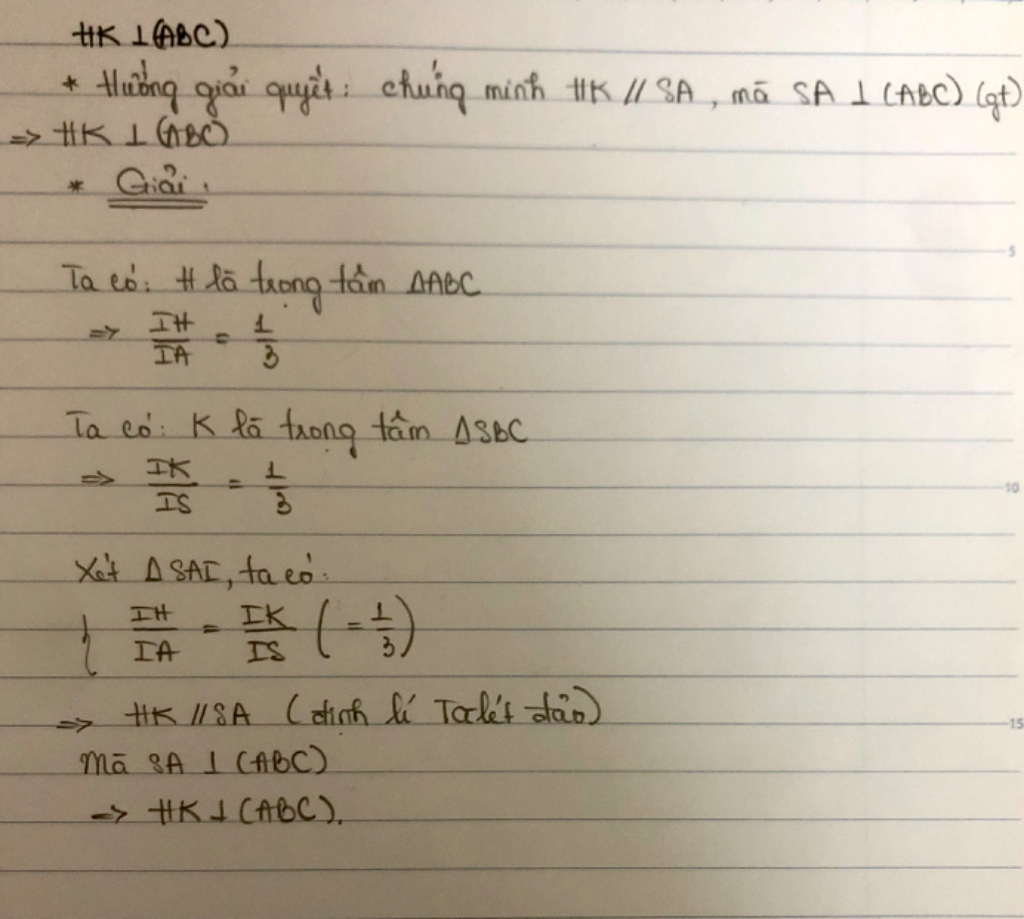 HK ⊥ (ABC)
* Hướng giải quyết: chứng minh HK // SA, mà SA ⊥ (ABC) (gt)
=> HK ⊥ (ABC)
* Giải:
5
Ta có: H là trọng tâm ΔABC
=> IH/IA = 1/3
Ta có: K là trọng tâm ΔSBC
=> IK/IS = 1/3
10
Xét ΔSAI, ta có:
{ IH/IA = IK/IS (= 1/3)
=> HK // SA (định lí Talét đảo)
15
Mà SA ⊥ (ABC)
=> HK ⊥ (ABC).